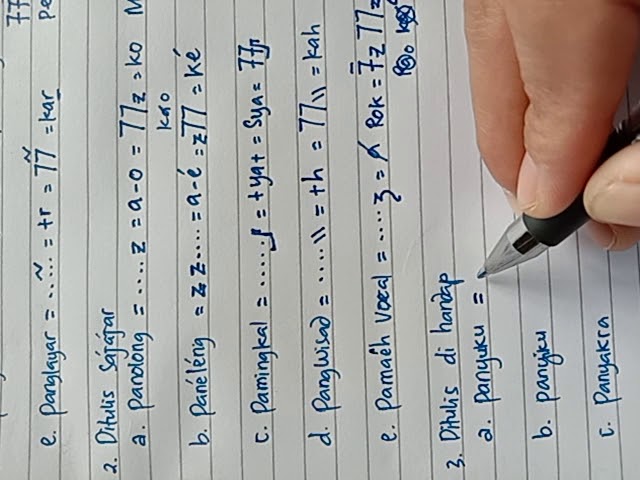 e. Panglayar = ..... = +r = 77 = kar
2. Ditulis Sajajar
a. Panolong = .... z = a-o = 77z = ko
kao
b. Panéléng = z z .... = a-é = z77 = ké
c. Pamingkal = ..... = +ya+ = Sya =
d. Pangwisad = ..... \\ = +h = 77\\ = kah
e. Pamaéh Vocal = .... = Rok =
3. Ditulis di handap
a. Panyuku =
b. panyiku
c. Panyakra